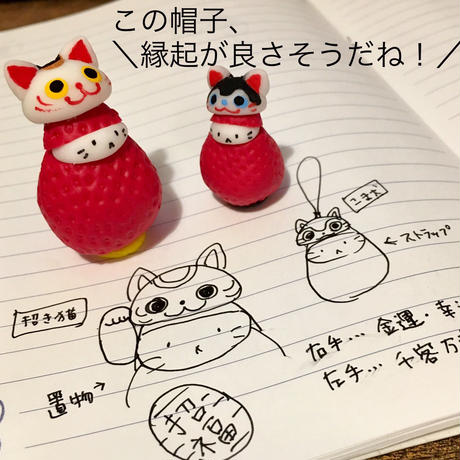 この帽子、
＼縁起が良さそうだね！／
こまだ
←ストラップ
招き猫
右手… 金運・幸
左手… 千客万
置物→
招福